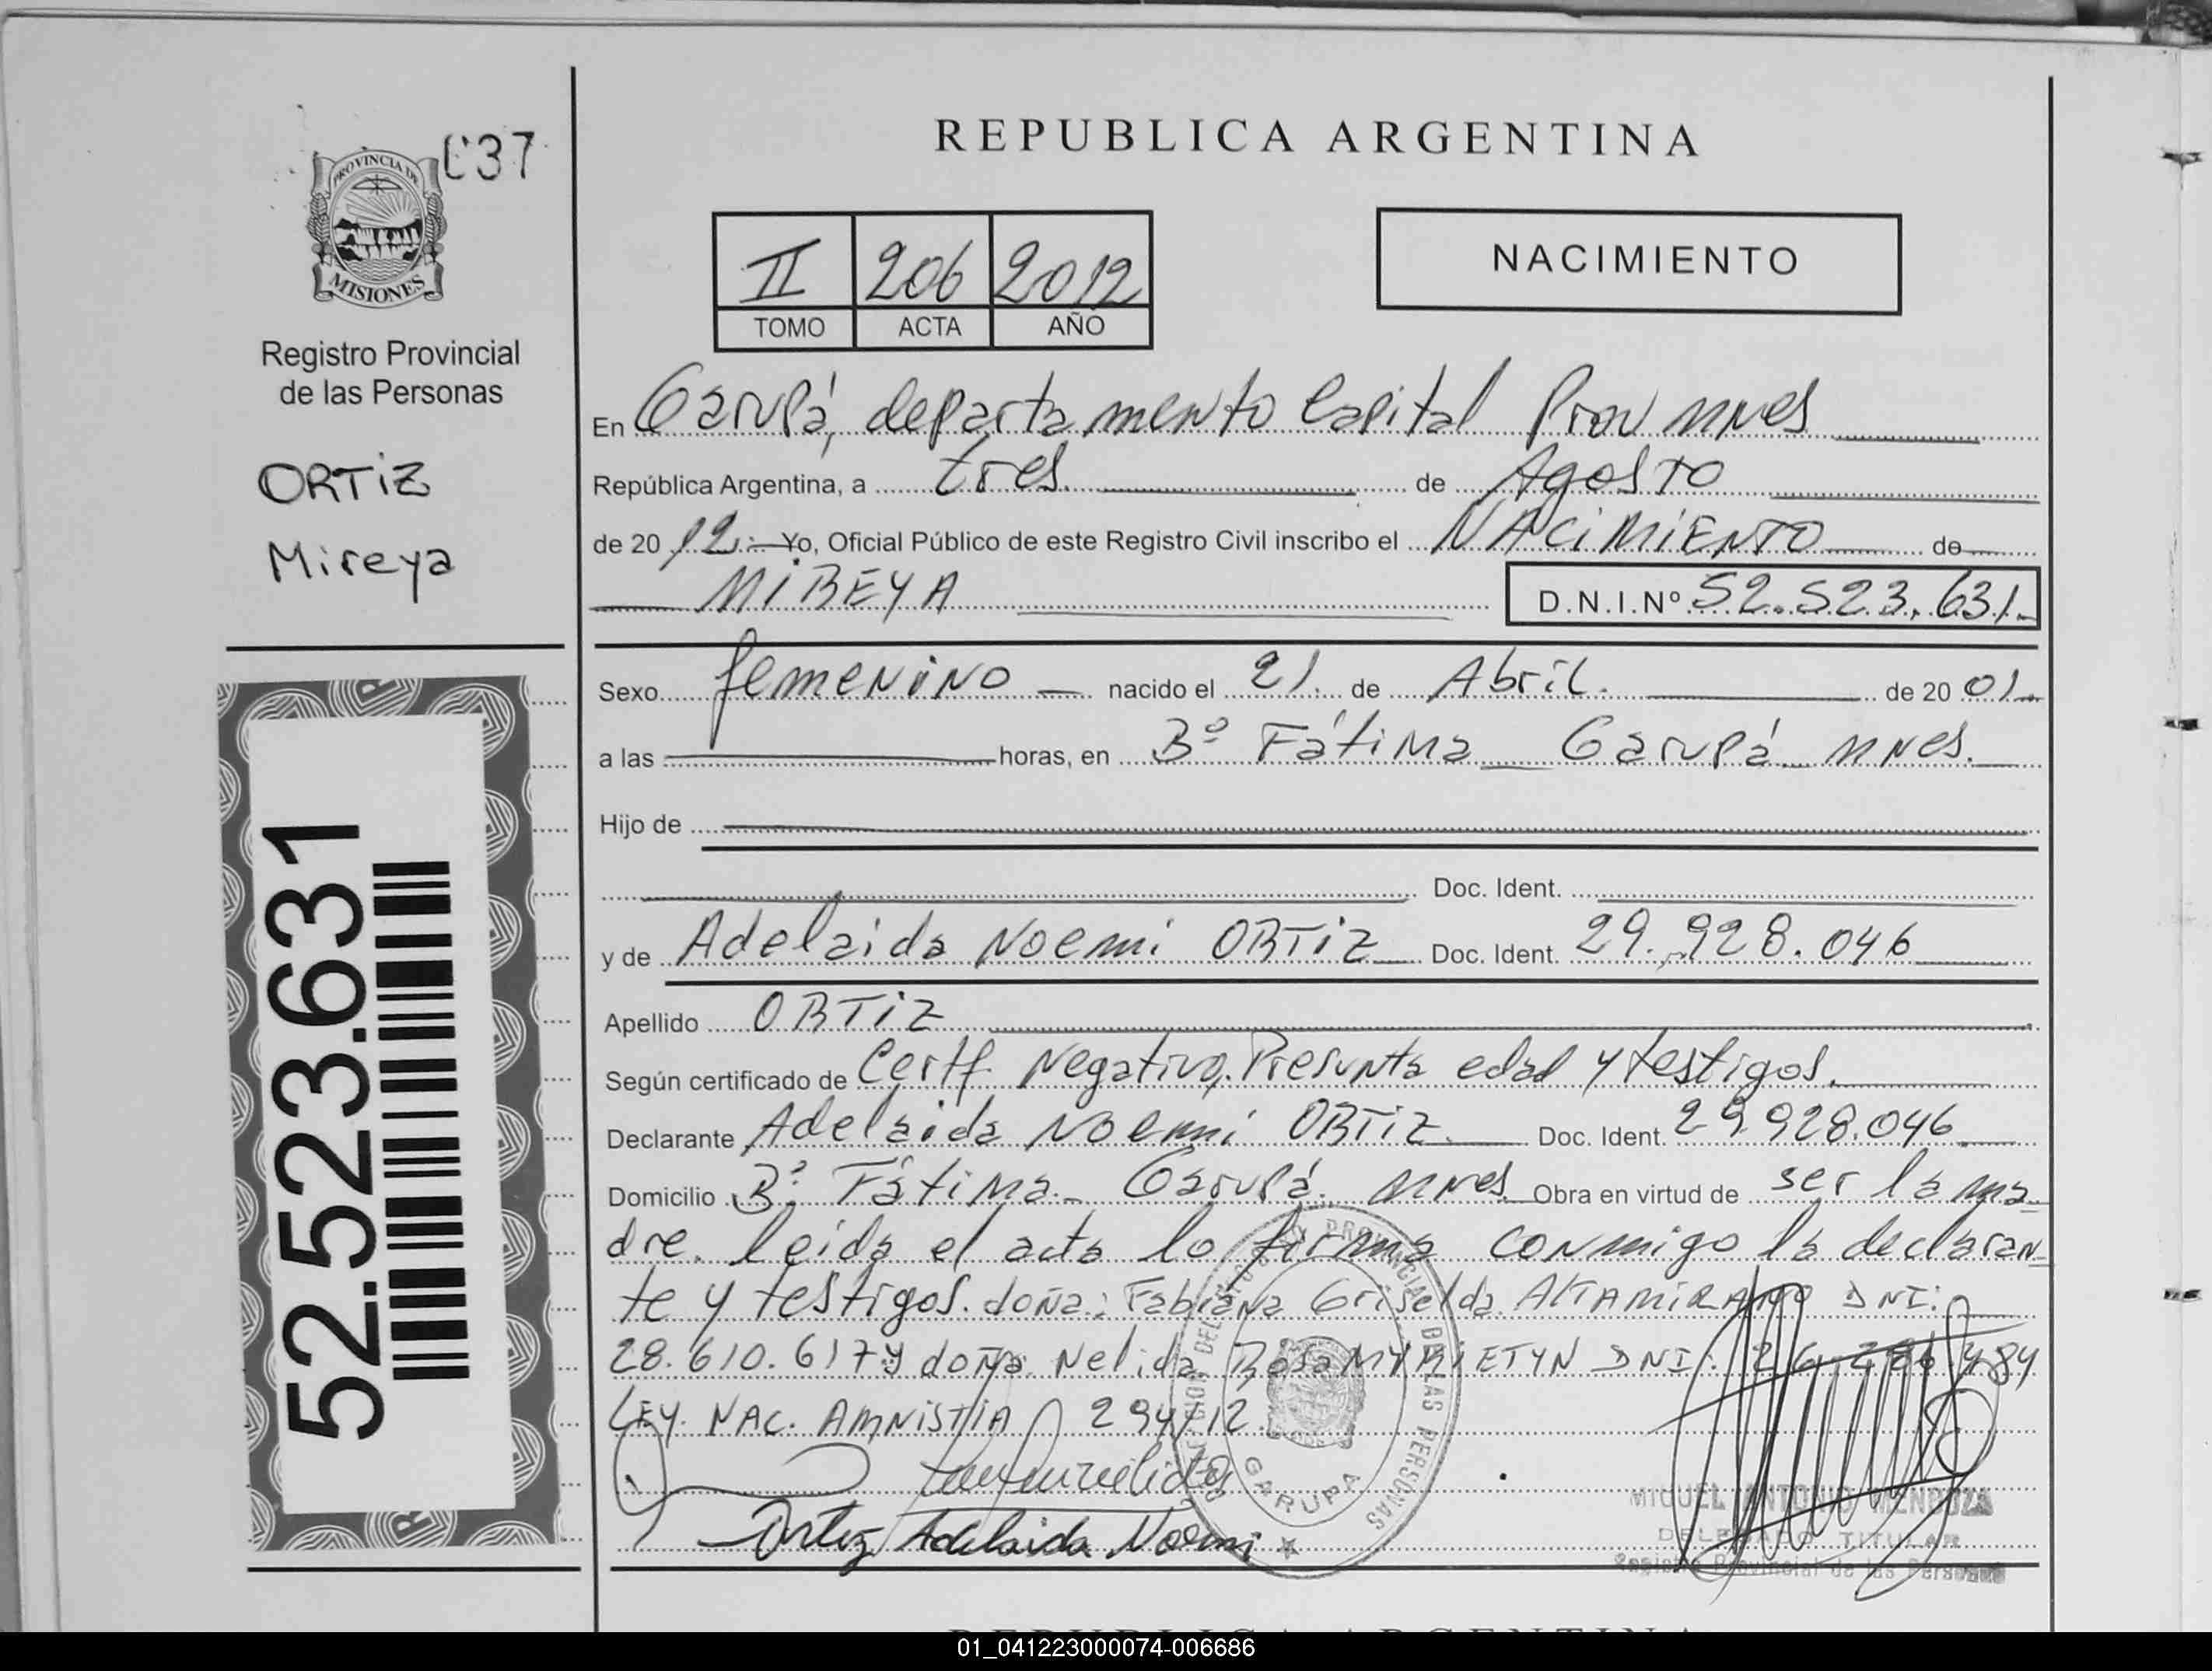 037
PROVINCIA DE
MISIONES
Registro Provincial
de las Personas
ORTIZ
Mireya
52.523.631
REPUBLICA ARGENTINA
II 206 2012
TOMO ACTA AÑO
NACIMIENTO
En Garupá, departamento Capital Prov Mnes
República Argentina, a tres de Agosto
de 20 12.- Yo, Oficial Público de este Registro Civil inscribo el NACIMIENTO de
MIREYA D.N.I.Nº 52.523.631.-
Sexo femenino nacido el 21 de Abril de 20 01.-
a las horas, en Bº Fátima Garupá Mnes.
Hijo de
Doc. Ident.
y de Adelaida Noemi ORTIZ Doc. Ident. 29.928.046
Apellido ORTIZ
Según certificado de Certf Negativo, Presunta edad y testigos.
Declarante Adelaida Noemi ORTIZ Doc. Ident. 29.928.046
Domicilio Bº Fátima - Garupá. Mnes Obra en virtud de ser la ma-
dre. leida el acta lo firma conmigo la declaran-
te y testigos. doña: Fabiana Griselda ALTAMIRANO DNI:
28.610.617 y doña Nelida Rosa DNI: 484
LEY. NAC. AMNISTIA 294/12.
Ortiz Adelaida Noemi
PROVINCIAL DE LAS PERSONAS
GARUPA
MIGUEL ANTONIO MENDOZA
DELEGADO TITULAR
Registro Provincial de las Personas
REPUBLICA ARGENTINA
01_041223000074-006686